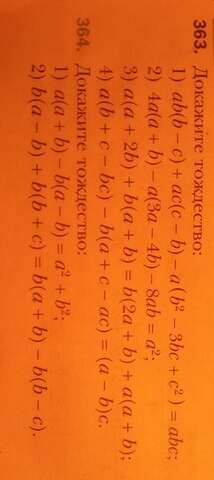 363. Докажите тождество:
1) ab(b − c) + ac(c − b) − a(b² − 3bc + c²) = abc;
2) 4a(a + b) − a(3a − 4b) − 8ab = a²;
3) a(a + 2b) + b(a + b) = b(2a + b) + a(a + b);
4) a(b + c − bc) − b(a + c − ac) = (a − b)c.
364. Докажите тождество:
1) a(a + b) − b(a − b) = a² + b²;
2) b(a − b) + b(b + c) = b(a + b) − b(b − c).